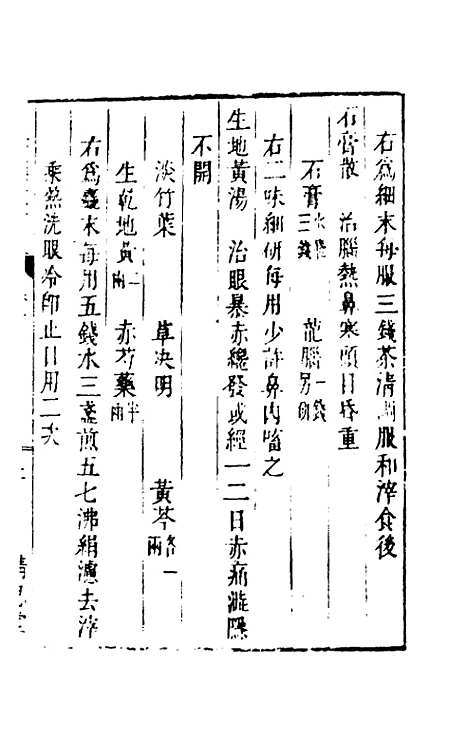 右為細末每服三錢茶清調服和滓食後
石膏散　治腦熱鼻塞頭目昏重
石膏三錢　龍腦一錢另研
右二味細研每用少許鼻內㗜之
生地黃湯　治眼暴赤纔發或經一二日赤痛澁隱
不開
淡竹葉　草決明　黃芩各一兩
生乾地黃一兩　赤芍藥半兩
右為麄末每用五錢水三盞煎五七沸絹濾去滓
乘熱洗眼冷即止日用二次